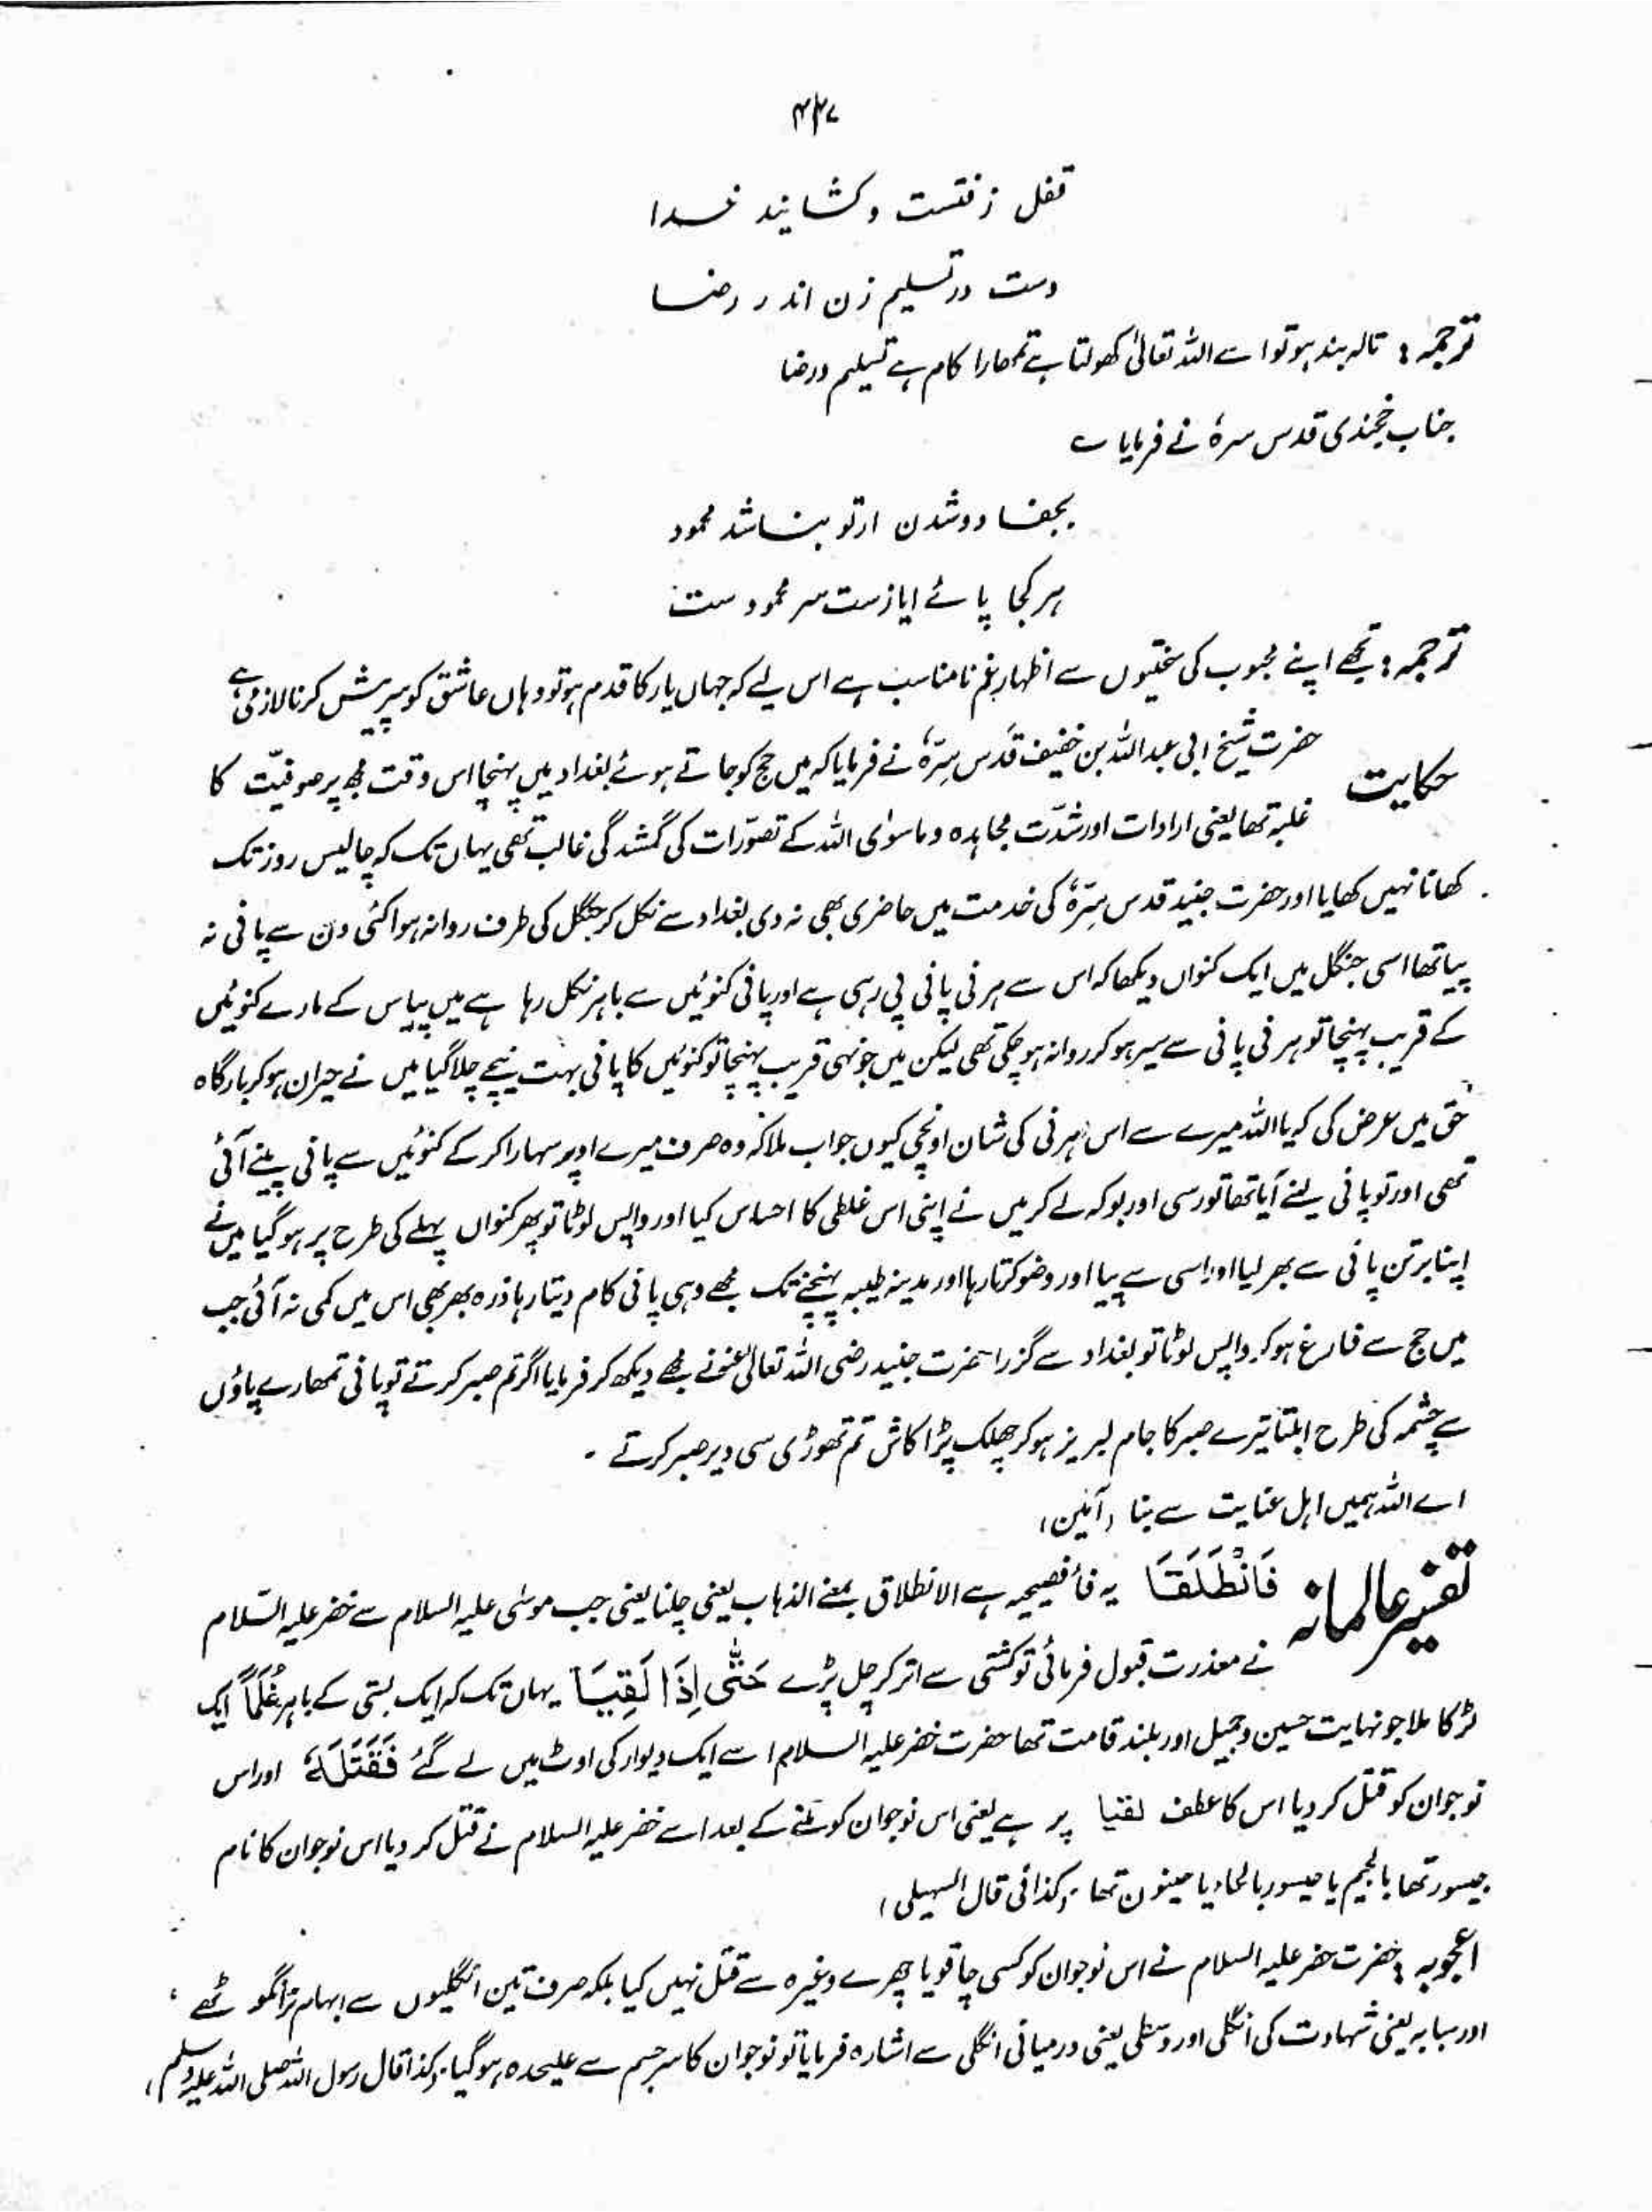 ۴۴۷
قفل زفتست و کشایند خدا
دست در تسلیم زن اندر رضا
ترجمہ: تالہ بند ہو تو اسے اللہ تعالیٰ کھولتا ہے تمھارا کام ہے تسلیم ورضا
جناب خجندی قدس سرہٗ نے فرمایا ے
بجفا دوشدن ازتو بناشد محمود
ہر کجا پائے ایازست سر محمودست
ترجمہ: تجھے اپنے محبوب کی سختیوں سے اظہارِ غم نامناسب ہے اس لیے کہ جہاں یار کا قدم ہو تو وہاں عاشق کو سر پیش کرنا لازمی ہے
حکایت حضرت شیخ ابی عبداللہ بن خفیف قدس سِرّہٗ نے فرمایا کہ میں حج کو جاتے ہوئے بغداد میں پہنچا اس وقت مجھ پر صوفیّت کا
غلبہ تھا یعنی ارادات اور شدّت مجاہدہ و ماسوٰی اللہ کے تصوّرات کی گمشدگی غالب تھی یہاں تک کہ چالیس روز تک
کھانا نہیں کھایا اور حضرت جنید قدس سِرّہٗ کی خدمت میں حاضری بھی نہ دی بغداد سے نکل کر جنگل کی طرف روانہ ہوا کئی دن سے پانی نہ
پیا تھا اسی جنگل میں ایک کنواں دیکھا کہ اس سے ہرنی پانی پی رہی ہے اور پانی کنوئیں سے باہر نکل رہا ہے میں پیاس کے مارے کنوئیں
کے قریب پہنچا تو ہرنی پانی سے سیر ہو کر روانہ ہو چکی تھی لیکن میں جونہی قریب پہنچا تو کنوئیں کا پانی بہت نیچے چلا گیا میں نے حیران ہو کر بارگاہ
حق میں عرض کی کہ یا اللہ میرے سے اس ہرنی کی شان اونچی کیوں جواب ملا کہ وہ صرف میرے اوپر سہارا کر کے کنوئیں سے پانی پینے آئی
تھی اور تو پانی لینے آیا تھا تو رسی اور بوکہ لے کر میں نے اپنی اس غلطی کا احساس کیا اور واپس لوٹا تو پھر کنواں پہلے کی طرح پر ہو گیا میں نے
اپنا برتن پانی سے بھر لیا اور اسی سے پیا اور وضو کرتا رہا اور مدینہ طیبہ پہنچنے تک مجھے وہی پانی کام دیتا رہا ذرہ بھر بھی اس میں کمی نہ آئی جب
میں حج سے فارغ ہو کر واپس لوٹا تو بغداد سے گزرا حضرت جنید رضی اللہ تعالیٰ عنہٗ نے مجھے دیکھ کر فرمایا اگر تم صبر کرتے تو پانی تمھارے پاؤں
سے چشمہ کی طرح ابلتا تیرے صبر کا جام لبریز ہو کر چھلک پڑا کاش تم تھوڑی سی دیر صبر کرتے ۔
اے اللہ ہمیں اہل عنایت سے بنا (آمین)
تفسیر عالمانہ فَانْطَلَقَا یہ فأ فصیحہ ہے الانطلاق بمعنے الذہاب یعنی چلنا یعنی جب موسٰی علیہ السلام سے خضر علیہ السّلام
نے معذرت قبول فرمائی تو کشتی سے اتر کر چل پڑے حَتّٰی اِذَا لَقِیَا یہاں تک کہ ایک بستی کے باہر غُلٰمًا ایک
لڑکا ملا جو نہایت حسین و جمیل اور بلند قامت تھا حضرت خضر علیہ السلام اسے ایک دیوار کی اوٹ میں لے گئے فَقَتَلَہٗ اور اس
نوجوان کو قتل کر دیا اس کا عطف لقیا پر ہے یعنی اس نوجوان کو ملنے کے بعد اسے خضر علیہ السلام نے قتل کر دیا اس نوجوان کا نام
جیسور تھا بالجیم یا حیسور بالحاء یا حینون تھا (کذافی قال السہیلی)
اعجوبہ: حضرت خضر علیہ السلام نے اس نوجوان کو کسی چاقو یا چھرے وغیرہ سے قتل نہیں کیا بلکہ صرف تین انگلیوں سے ابہام (انگوٹھے)
اور سبابہ یعنی شہادت کی انگلی اور وسطٰی یعنی درمیانی انگلی سے اشارہ فرمایا تو نوجوان کا سر جسم سے علیحدہ ہو گیا (کذا قال رسول اللہ صلی اللہ علیہ وسلم)